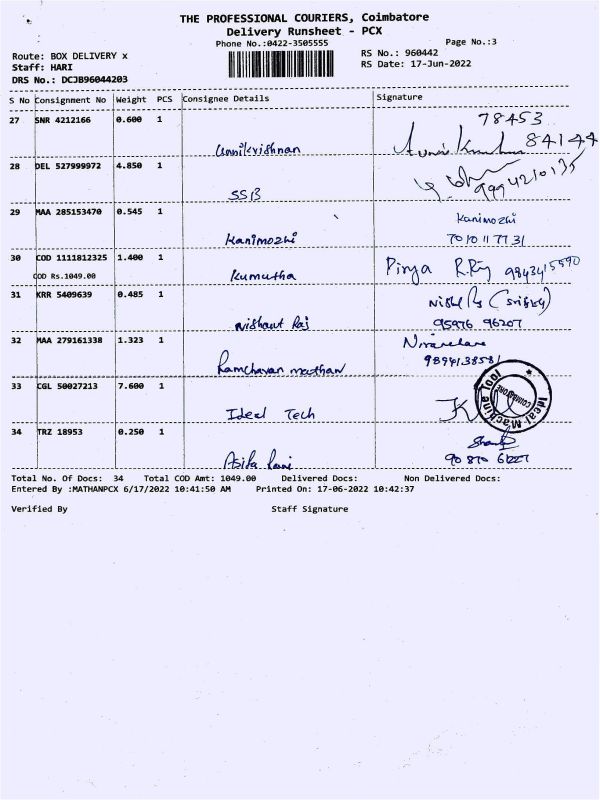 THE PROFESSIONAL COURIERS, Coimbatore
Delivery Runsheet - PCX
Phone No.:0422-3505555
Page No.:3
Route: BOX DELIVERY x
RS No.: 960442
Staff: HARI
RS Date: 17-Jun-2022
DRS No.: DCJB96044203
S No Consignment No Weight PCS Consignee Details Signature
27 SNR 4212166 0.600 1 78453
84144
Unnikrishnan
28 DEL 527999972 4.850 1
SSB 9994210135
29 MAA 285153470 0.545 1 Kanimozhi
Kanimozhi 7010117731
30 COD 1111812325 1.400 1
COD Rs.1049.00 Kumutha Pirya
31 KRR 5409639 0.485 1
Nishant Raj 95976 96207
32 MAA 279161338 1.323 1
Ramcharan 9894138531
33 CGL 50027213 7.600 1
Ideal Tech
Ideal Machine Tool
COIMBATORE
34 TRZ 18953 0.250 1
90870 61227
Total No. Of Docs: 34 Total COD Amt: 1049.00 Delivered Docs: Non Delivered Docs:
Entered By :MATHANPCX 6/17/2022 10:41:50 AM Printed On: 17-06-2022 10:42:37
Verified By Staff Signature